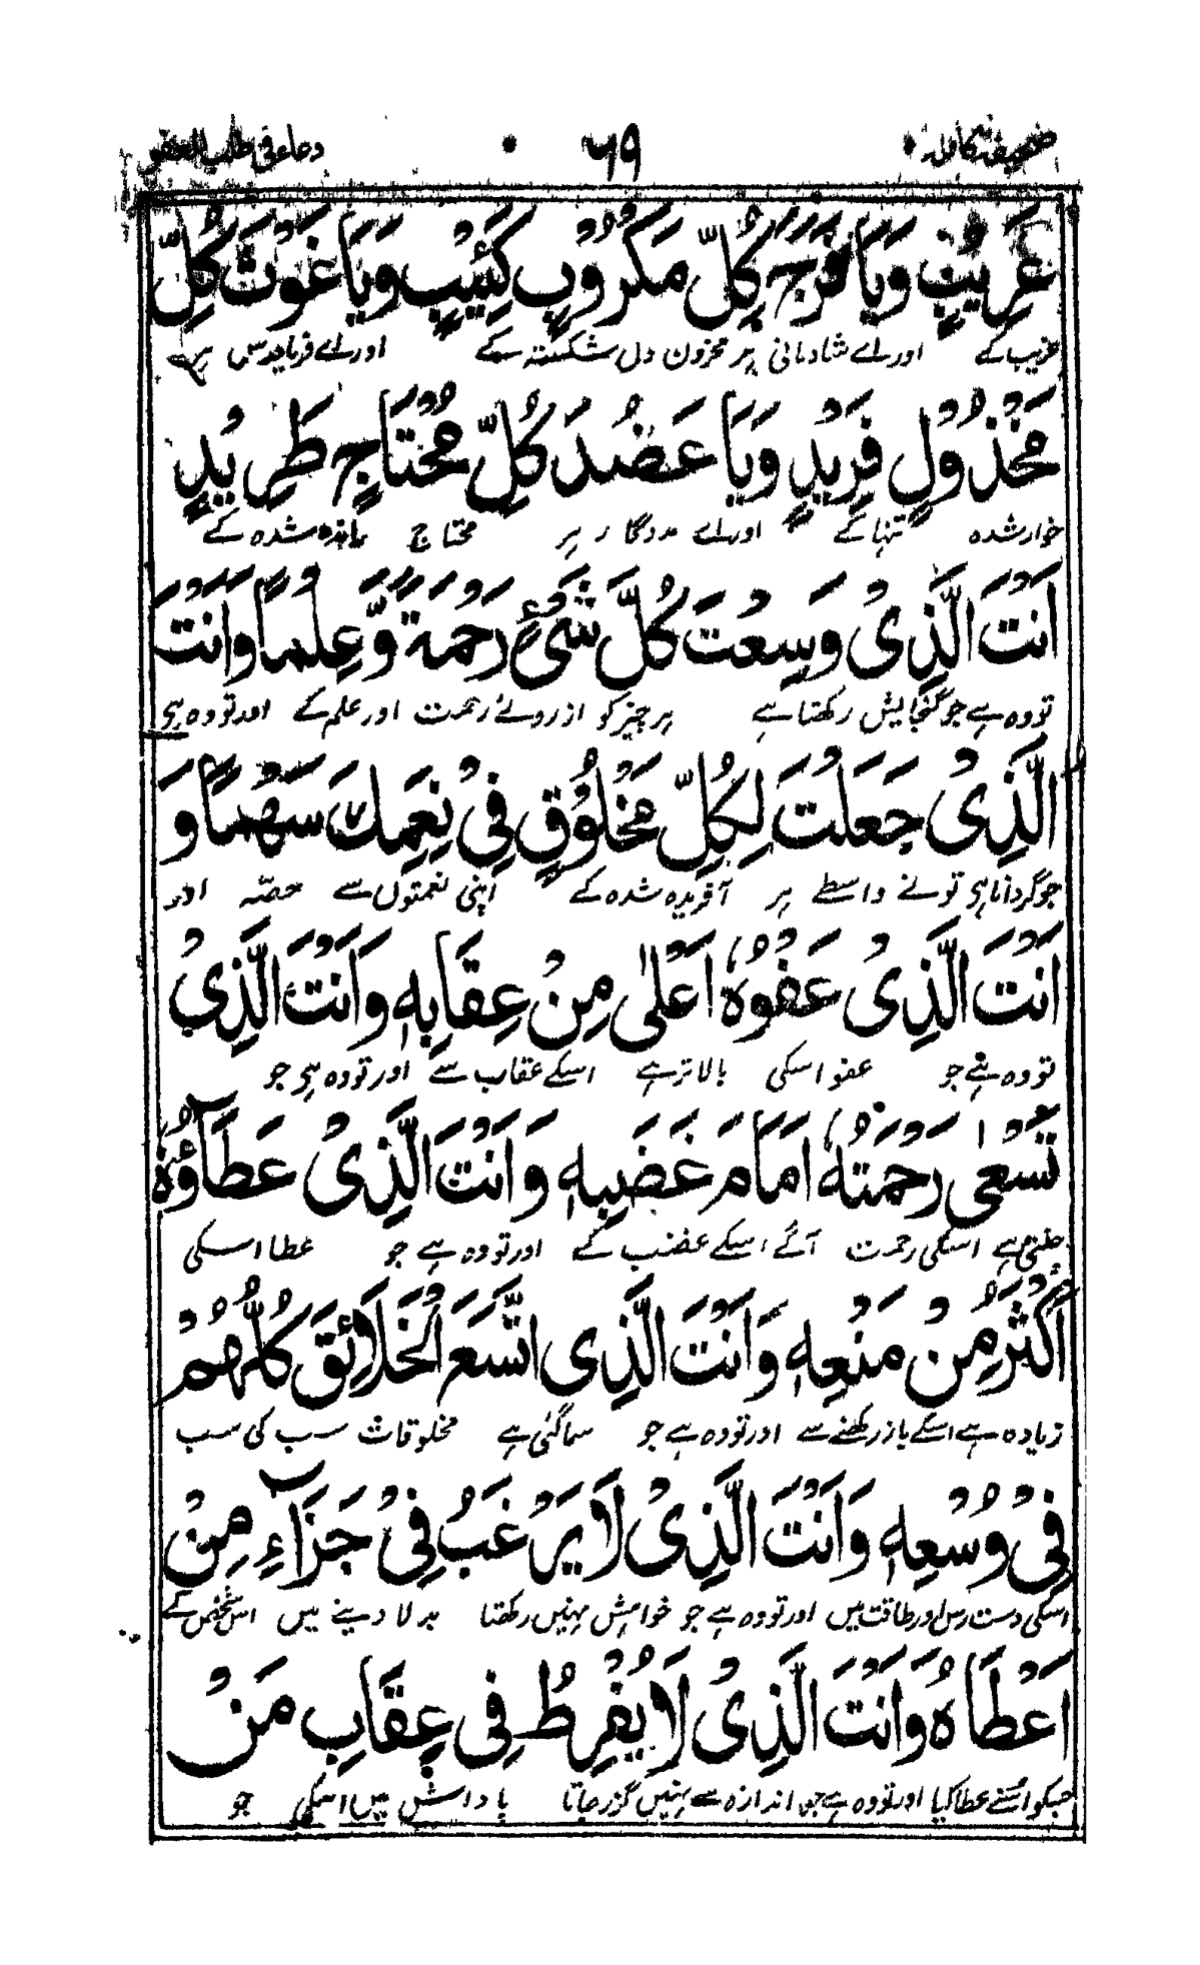 صحیفہ کاملہ ۶۹ دعاء فی طلب العفو
غَرِيْبٍ وَيَا فَرَجَ كُلِّ مَكْرُوْبٍ كَئِيْبٍ وَيَا غَوْثَ كُلِّ
غریب کے اور اے شادمانی ہر محزون دل شکستہ کے اور اے فریادرس ہر
مَخْذُوْلٍ فَرِيْدٍ وَيَا عَضُدَ كُلِّ مُحْتَاجٍ طَرِيْدٍ
خوار شدہ تنہا کے اور اے مددگار ہر محتاج راندہ شدہ کے
اَنْتَ الَّذِىْ وَسِعْتَ كُلَّ شَىْءٍ رَحْمَةً وَّعِلْمًا وَاَنْتَ
تو وہ ہے جو گنجایش رکھتا ہے ہر چیز کو از روئے رحمت اور علم کے اور تو وہ ہی
الَّذِىْ جَعَلْتَ لِكُلِّ مَخْلُوْقٍ فِىْ نِعَمِكَ سَهْمًا وَ
جو گردانا ہی تونے واسطے ہر آفریدہ شدہ کے اپنی نعمتوں سے حصّہ اور
اَنْتَ الَّذِىْ عَفْوُهٗ اَعْلٰى مِنْ عِقَابِهٖ وَاَنْتَ الَّذِىْ
تو وہ ہے جو عفو اسکی بالاتر ہے اسکے عقاب سے اور تو وہ ہی جو
تَسْعٰى رَحْمَتُهٗ اَمَامَ غَضَبِهٖ وَاَنْتَ الَّذِىْ عَطَآؤُهٗ
چلتی ہے اسکی رحمت آگے اسکے غضب کے اور تو وہ ہے جو عطا اسکی
اَكْثَرُ مِنْ مَنْعِهٖ وَاَنْتَ الَّذِى اتَّسَعَ الْخَلَائِقُ كُلُّهُمْ
زیادہ ہے اسکے باز رکھنے سے اور تو وہ ہے جو سماگئی ہے مخلوقات سب کی سب
فِىْ وُسْعِهٖ وَاَنْتَ الَّذِىْ لَا يَرْغَبُ فِىْ جَزَآءِ مِنْ
اسکی دست رس اور طاقت میں اور تو وہ ہے جو خواہش نہیں رکھتا بدلا دینے میں اس شخص کے
اَعْطَاهُ وَاَنْتَ الَّذِىْ لَا يُفْرِطُ فِى عِقَابِ مَنْ
جسکو اسنے عطا کیا اور تو وہ ہے جو اندازہ سے نہیں گزر جاتا پاداش میں اسکی جو